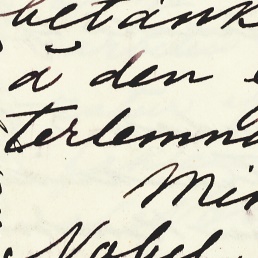 betänk
å den
terlemna
Min
Nobel